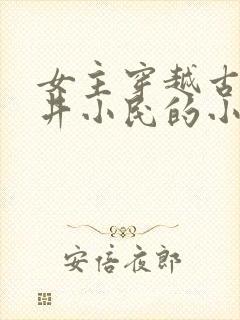 女主穿越古
井小民的小
安倍夜郎